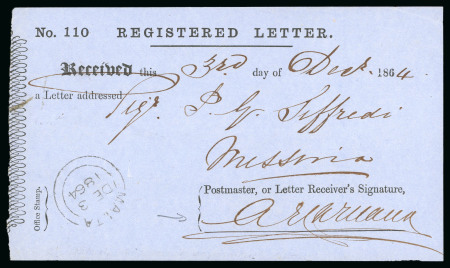 No. 110 REGISTERED LETTER.
Received this 3rd day of Decr. 1864
a Letter addressed Sigr. P. G. Siffredi
Messina
(Postmaster, or Letter Receiver's Signature,
A Caruana
Office Stamp.
MALTA
DE 3
1864